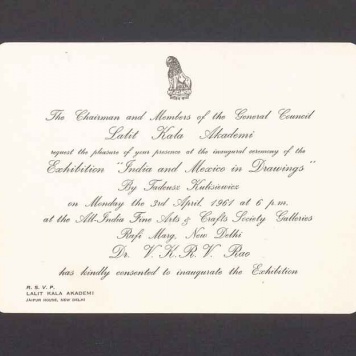 The Chairman and Members of the General Council
Lalit Kala Akademi
request the pleasure of your presence at the inaugural ceremony of the
Exhibition "India and Mexico in Drawings"
By Tadeusz Kulisiewicz
on Monday the 3rd April, 1961 at 6 p.m.
at the All-India Fine Arts & Crafts Society Galleries
Rafi Marg, New Delhi
Dr. V. K. R. V. Rao
has kindly consented to inaugurate the Exhibition
R. S. V. P.
LALIT KALA AKADEMI
JAIPUR HOUSE, NEW DELHI